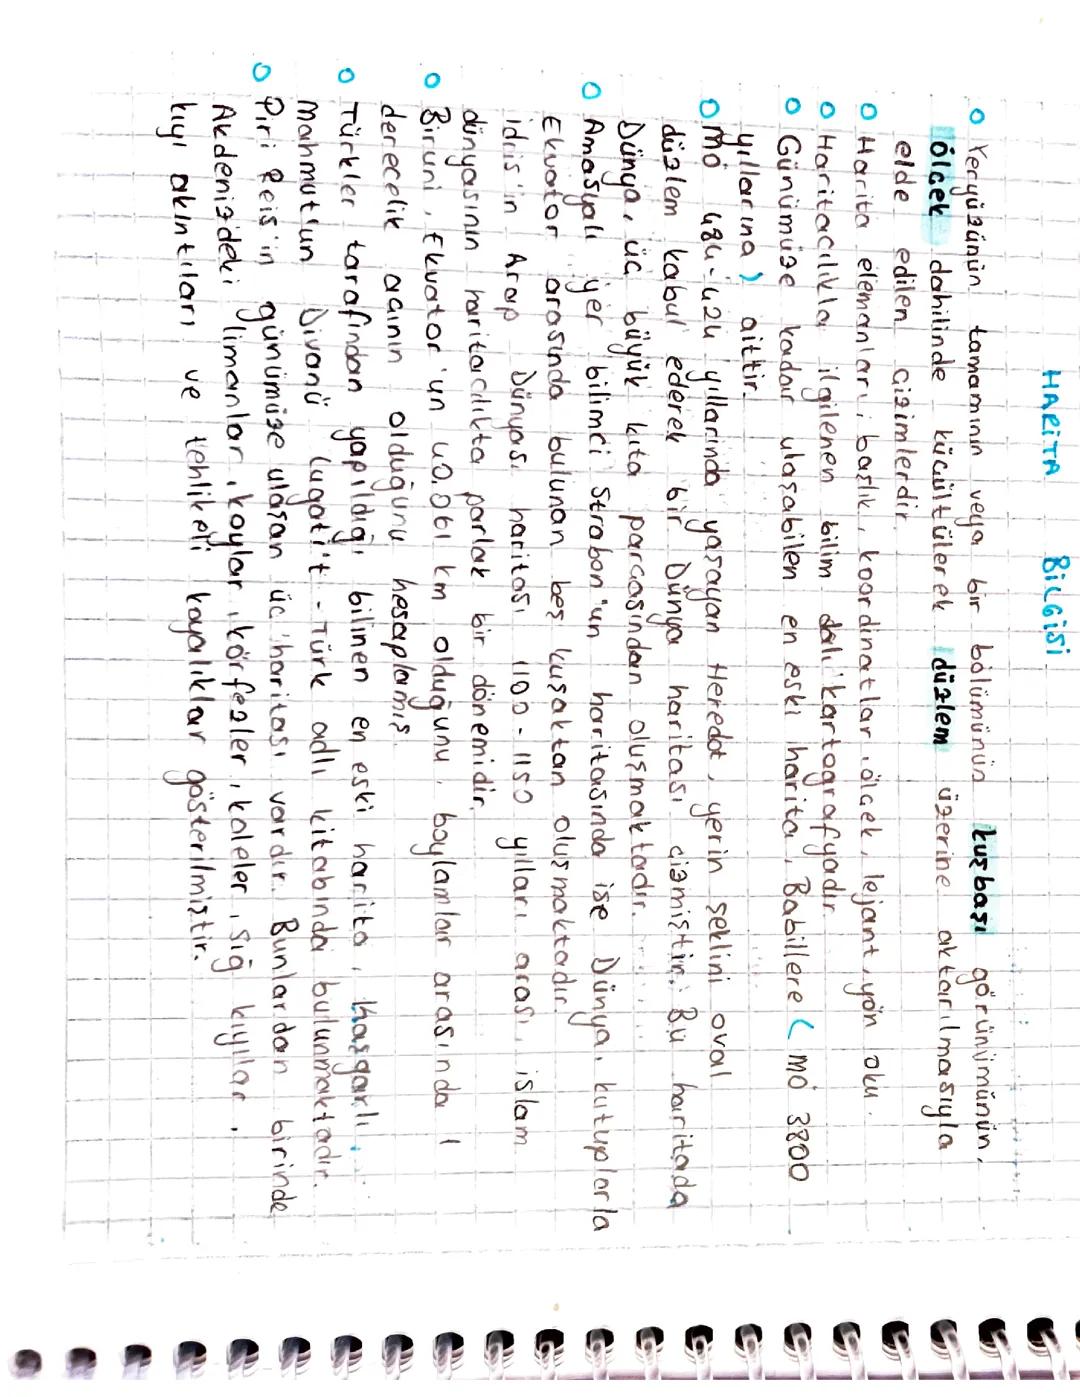 HARİTA BİLGİSİ
Yeryüzünün tamamının veya bir bölümünün kuşbaşı görünümünün,
ölçek dahilinde küçültülerek düzlem üzerine aktarılmasıyla
elde edilen çizimlerdir.
Harita elemanları; başlık, koordinatlar, ölçek, lejant, yön oku.
Haritacılıkla ilgilenen bilim dalı kartografyadır.
Günümüze kadar ulaşabilen en eski harita, Babillere (mö 3800
yıllarına) aittir.
mö 484-424 yıllarında yaşayan Heredot, yerin şeklini oval
düzlem kabul ederek bir Dünya haritası çizmiştir. Bu haritada
Dünya, üç büyük kıta parçasından oluşmaktadır.
Amasyalı yer bilimci Strabon'un haritasında ise Dünya, kutuplarla
Ekvator arasında bulunan beş kuşaktan oluşmaktadır.
idris'in Arap Dünyası haritası 1100-1150 yılları arası, islam
dünyasının haritacılıkta parlak bir dönemidir.
Biruni, Ekvator'un 40.061 km olduğunu, boylamlar arasında 1
derecelik açının olduğunu hesaplamış.
Türkler tarafından yapıldığı bilinen en eski harita, kaşgarlı
mahmut'un Divanü lugati't-Türk adlı kitabında bulunmaktadır.
Piri Reis'in günümüze ulaşan üç haritası vardır. Bunlardan birinde
Akdenizdeki limanlar, koylar, körfezler, kaleler, sığ kıyılar,
kıyı akıntıları ve tehlikeli kayalıklar gösterilmiştir.